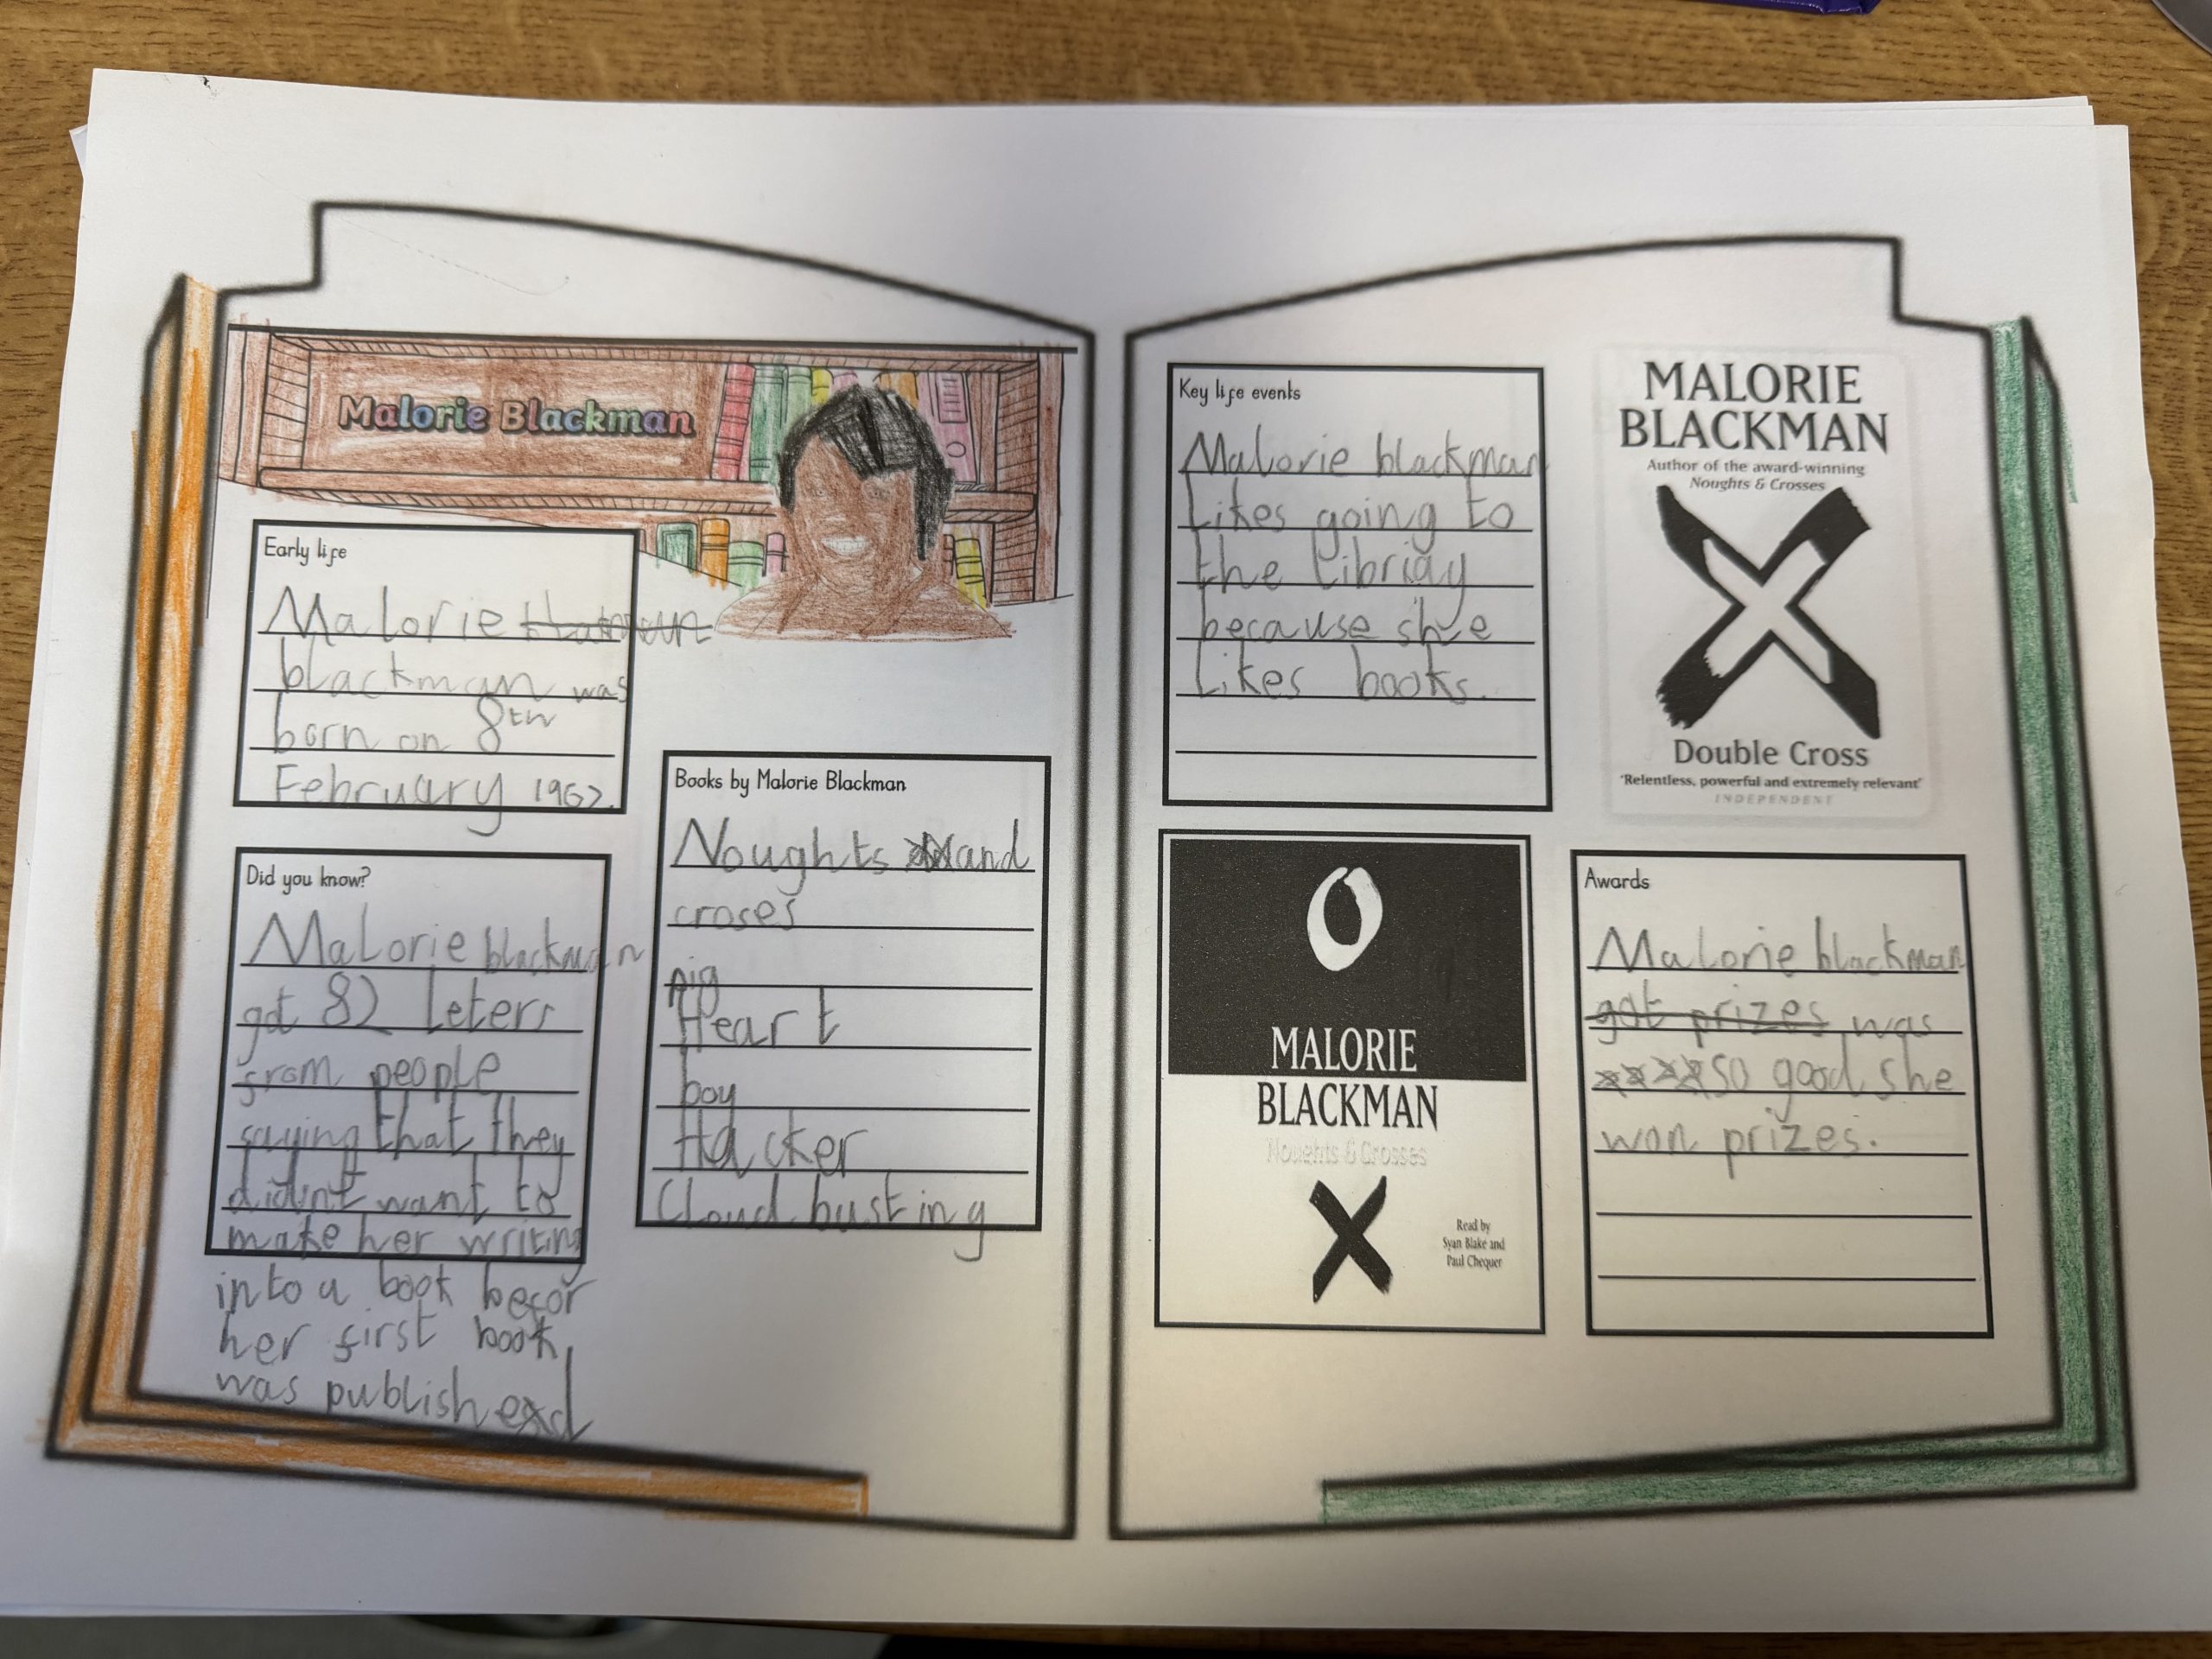 Malorie Blackman
Early life
Malorie
blackman was
born on 8th
February 1962.
Did you know?
Malorie blackman
got 82 leters
from people
saying that they
didn't want to
make her writing
into a book befor
her first book
was published
Books by Malorie Blackman
Noughts and
croses
pig
Heart
boy
Hacker
Cloud busting
Key life events
Malorie blackman
Likes going to
the libriay
because she
Likes books.
MALORIE
BLACKMAN
Author of the award-winning
Noughts & Crosses
Double Cross
'Relentless, powerful and extremely relevant'
INDEPENDENT
MALORIE
BLACKMAN
Noughts & Crosses
Read by
Syan Blake and
Paul Chequer
Awards
Malorie blackman
got prizes was
so good she
won prizes.